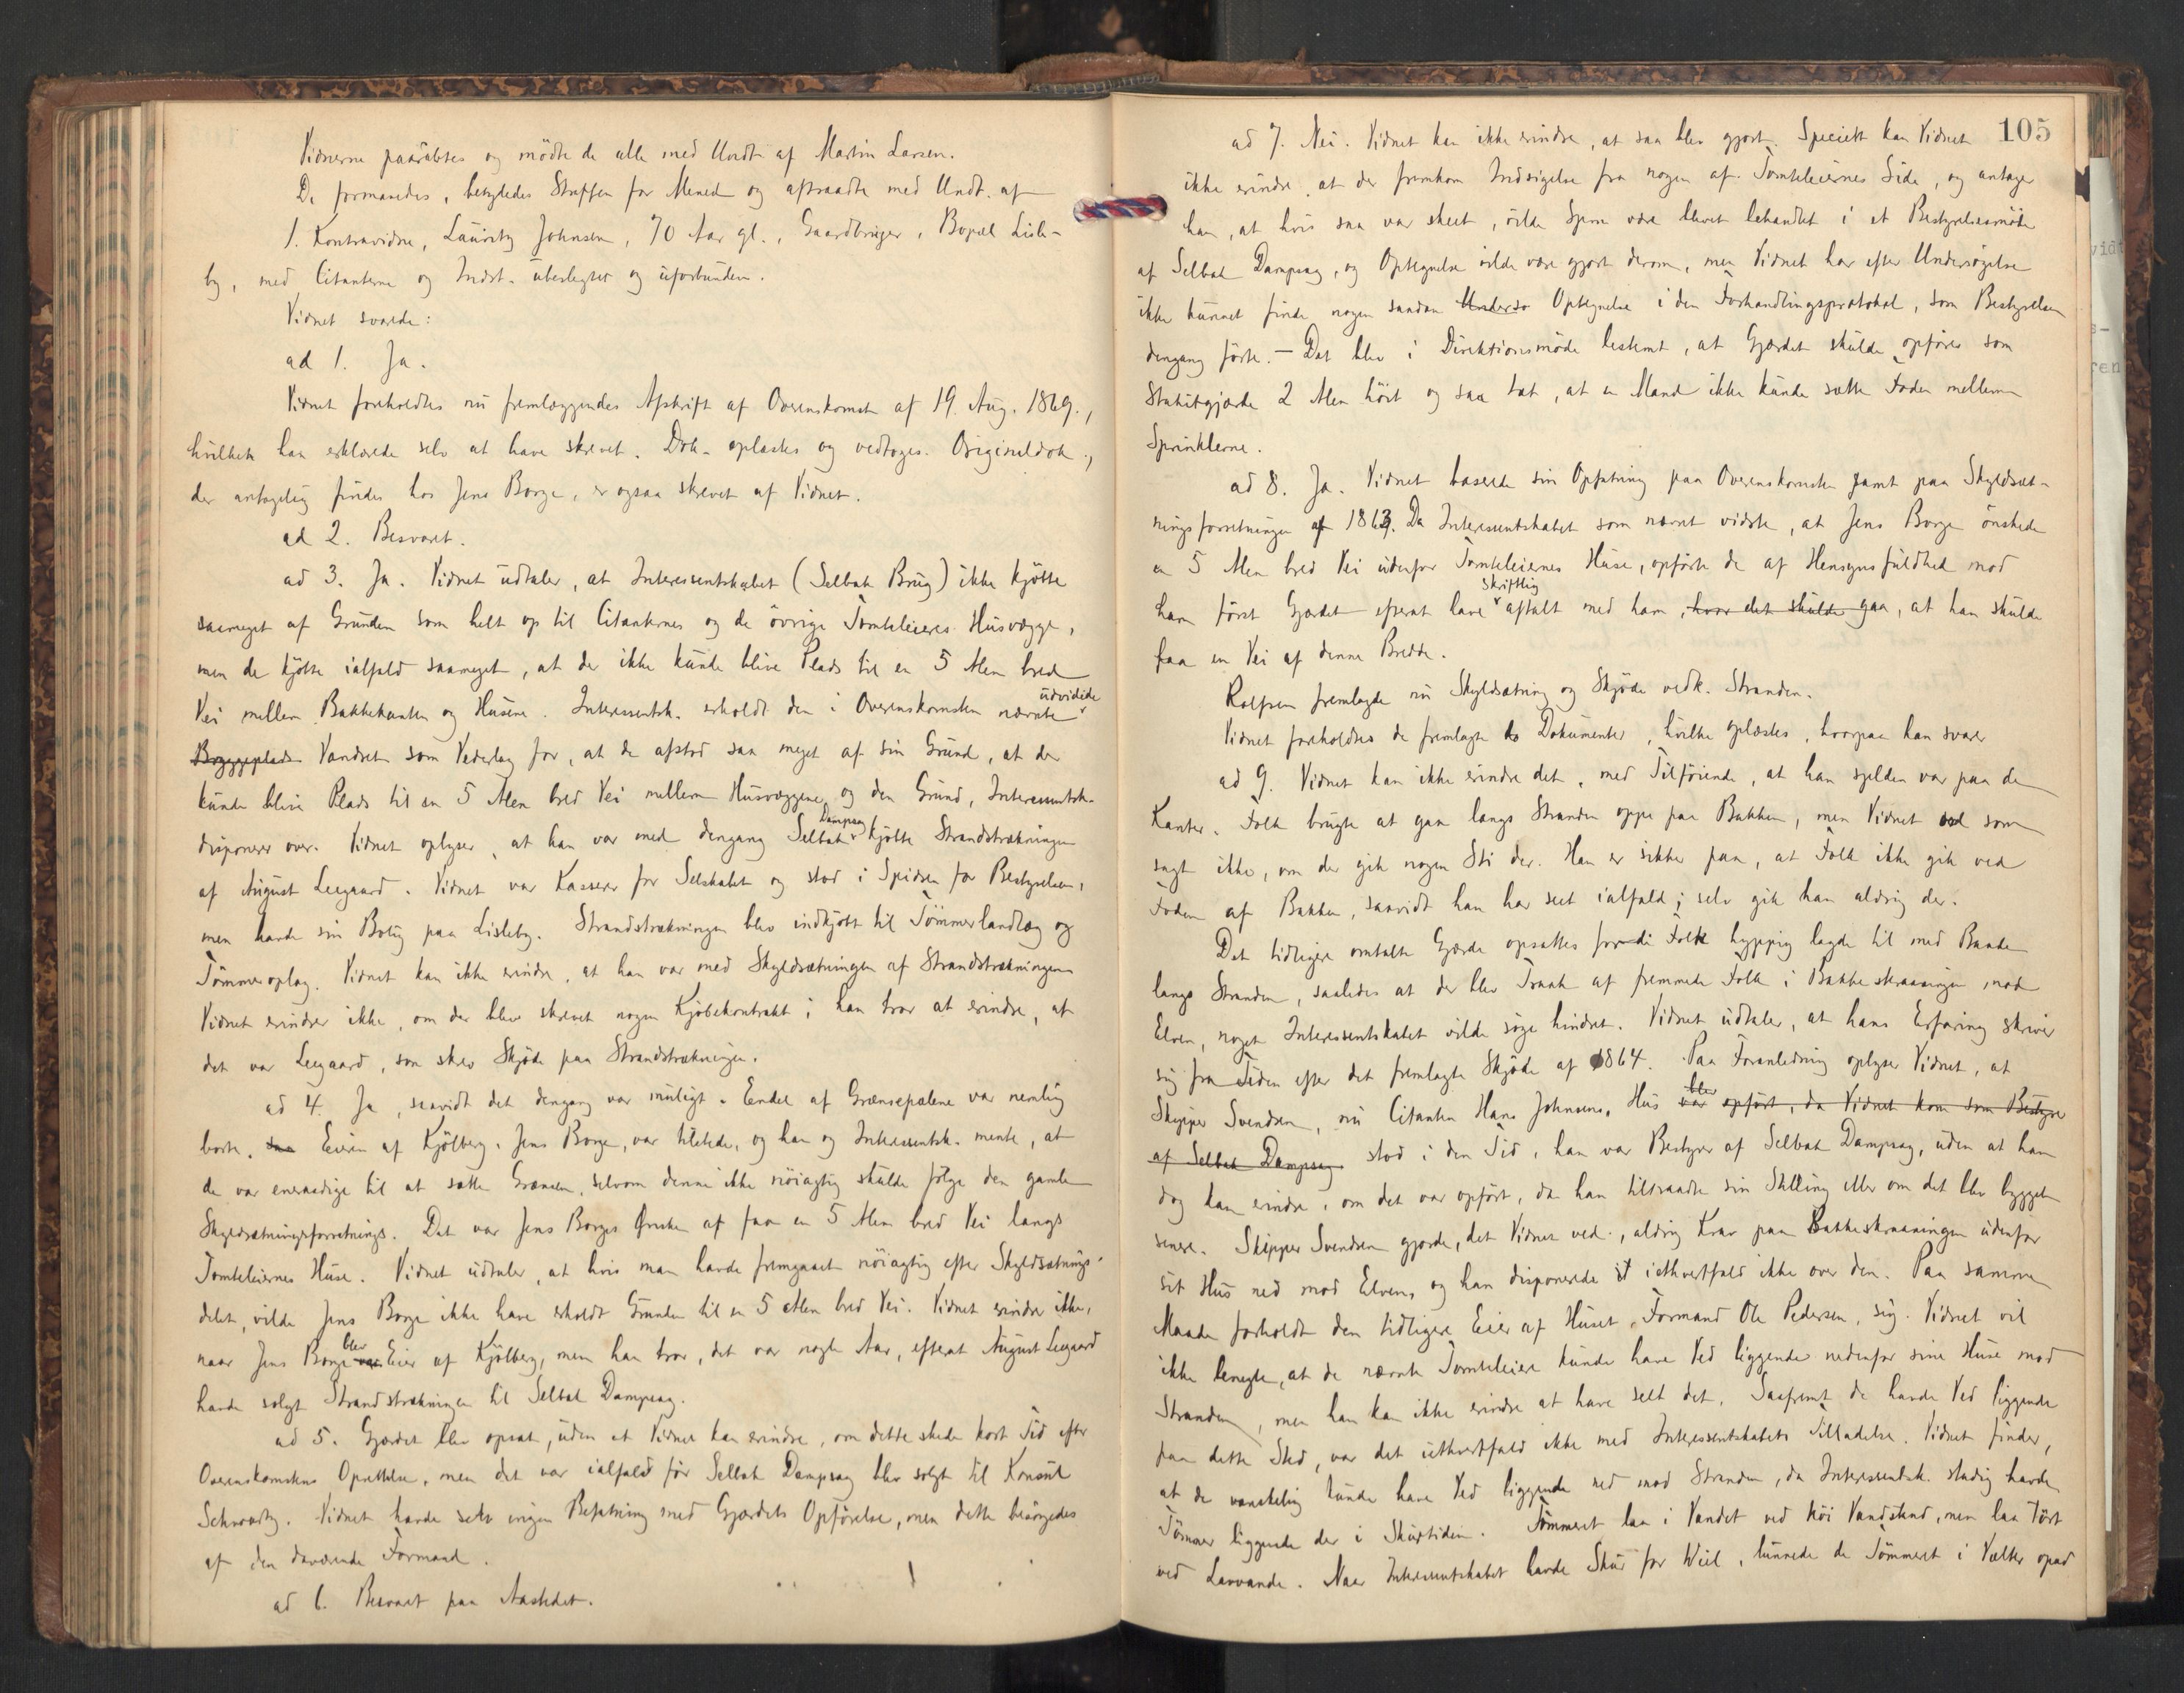 Vidnerne paaraabtes og mødte de alle med Undt. af Martin Larsen.
De formanedes, betydedes Straffen for Mened og aftraadte med Undt. af
1. Kontravidne, Lauritz Johnsen, 70 Aar gl., Gaardbruger, Bopæl Lisle-
by, med Citanterne og Indst. ubeslegtet og uforbunden.
Vidnet svarede:
ad 1. Ja.
Vidnet foreholdtes nu fremlæggendes Afskrift af Overenskomst af 19. Aug. 1869.,
hvilken han erklærede selv at have skrevet. Dok. oplæstes og vedtoges. Originaldok.,
der antagelig findes hos Jens Borge, er ogsaa skrevet af Vidnet.
ad 2. Besvaret.
ad 3. Ja. Vidnet udtaler, at Interessentskabet (Selbak Brug) ikke kjøbte
saameget af Grunden som helt op til Citanternes og de øvrige Tomteleieres Husvægge,
men de kjøbte ialfald saameget, at der ikke kunde blive Plads til en 5 Alen bred
Vei mellem Bakkekanten og Husene. Interessentsk. erholdt den i Overenskomsten nævnte udvidede
Bryggeplads Vandret som Vederlag for, at de afstod saa meget af sin Grund, at der
kunde blive Plads til en 5 Alen bred Vei mellem Husvæggene og den Grund, Interessentsk.
disponerer over. Vidnet oplyser, at han var med dengang Selbak Dampsag kjøbte Strandstrækningen
af August Leegaard. Vidnet var Kasserer for Selskabet og stod i Spidsen for Bestyrelsen,
men havde sin Bolig paa Lisleby. Strandstrækningen blev indkjøbt til Tømmerlandlæg og
Tømmeroplag. Vidnet kan ikke erindre, at han var med Skyldsætningen af Strandstrækningen
Vidnet erindrer ikke, om der blev skrevet nogen Kjøbekontrakt; han tror at erindre, at
det var Leegaard, som skrev Skjøde paa Strandstrækningen.
ad 4. Ja, saavidt det dengang var muligt. Endel af Grænsepælene var nemlig
borte. Eieren af Kjølberg, Jens Borge, var tilstede, og han og Interessentsk. mente, at
de var eneraadige til at sætte Grænsen, selvom denne ikke nøiagtig skulde følge den gamle
Skyldsætningsforretnings. Det var Jens Borges Ønske at faa en 5 Alen bred Vei langs
Tomteleiernes Huse. Vidnet udtaler, at hvis man havde fremgaaet nøiagtig efter Skyldsætnings-
delet, vilde Jens Borge ikke have erholdt Grunden til en 5 Alen bred Vei. Vidnet erindrer ikke,
naar Jens Borge var blev Eier af Kjølberg, men han tror, det var nogle Aar, efterat August Leegaard
havde solgt Strandstrækningen til Selbak Dampsag.
ad 5. Gjærdet blev opsat, uden at Vidnet kan erindre, om dette skede kort Tid efter
Overenskomstens Oprettelse, men det var ialfald før Selbak Dampsag blev solgt til Konsul
Schwartz. Vidnet havde selv ingen Befatning med Gjærdets Opførelse, men dette besørgedes
af den daværende Formand.
ad 6. Besvaret paa Aastedet.
105
ad 7. Nei. Vidnet kan ikke erindre, at saa blev gjort. Specielt kan Vidnet
ikke erindre, at der fremkom Indsigelse fra nogen af Tomteleiernes Side, og antager
han, at hvis saa var skeet, vilde Spm. være blevet behandlet i et Bestyrelsesmøde
af Selbak Dampsag, og Optegnelse vilde være gjort derom, men Vidnet har efter Undersøgelse
ikke kunnet finde nogen saadan Undersø Optegnelse i den Forhandlingsprotokol, som Bestyrelsen
dengang førte. — Det blev i Direktionsmøde bestemt, at Gjærdet skulde opføres som
Stakitgjærde 2 Alen høit og saa tæt, at en Mand ikke kunde sætte Foden mellem
Sprinklerne.
ad 8. Ja. Vidnet baserede sin Opfatning paa Overenskomsten samt paa Skyldsæt-
ningsforretningen af 1863. Da Interessentskabet som nævnt vidste, at Jens Borge ønskede
en 5 Alen bred Vei udenfor Tomteleiernes Huse, opførte de af Hensynsfuldhed mod
ham først Gjærdet efterat have skriftlig aftalt med ham, hvor det skulde gaa, at han skulde
faa en Vei af denne Bredde.
Rolfsen fremlagde nu Skyldsætning og Skjøde vedk. Stranden.
Vidnet foreholdtes de fremlagte to Dokumenter, hvilke oplæstes, hvorpaa han svarer
ad 9. Vidnet kan ikke erindre det, med Tilføiende, at han sjelden var paa de
Kanter. Folk brugte at gaa langs Stranden oppe paa Bakken, men Vidnet ved som
sagt ikke, om der gik nogen Sti der. Han er sikker paa, at Folk ikke gik ved
Foden af Bakken, saavidt han har seet ialfald; selv gik han aldrig der.
Det tidligere omtalte Gjærde opsattes fordi Folk hyppig lagde til med Baade
langs Stranden, saaledes at der blev Traak af fremmede Folk i Bakkeskraaningen mod
Elven, noget Interessentskabet vilde søge hindret. Vidnet udtaler, at hans Erfaring skriver
sig fra Tiden efter det fremlagte Skjøde af 1864. Paa Foranledning oplyser Vidnet, at
Skipper Svendsen, nu Citanten Hans Johnsens, Hus var blev opført, da Vidnet kom som Bestyrer
af Selbak Dampsag stod i den Tid, han var Bestyrer af Selbak Dampsag, uden at han
dog kan erindre, om det var opført, da han tiltraadte sin Stilling eller om det blev bygget
senere. Skipper Svendsen gjorde, det Vidnet ved, aldrig Krav paa Bakkeskraaningen udenfor
sit Hus ned mod Elven, og han disponerede iethvertfald ikke over den. Paa samme
Maade forholdt den tidligere Eier af Huset, Formand Ole Pedersen, sig. Vidnet vil
ikke benegte, at de nævnte Tomteleiere kunde have Ved liggende nedenfor sine Huse mod
Stranden, men han kan ikke erindre at have seet det. Saafremt de havde Ved liggende
paa dette Sted, var det iethvertfald ikke med Interessentskabets Tilladelse. Vidnet finder,
at de vanskelig kunde have Ved liggende ned mod Stranden, da Interessentsk. stadig havde
Tømmer liggende der i Skurtiden. Tømmeret laa i Vandet ved høi Vandstand, men laa tørt
ved Lavvande. Naar Interessentskabet havde Skur for Wiel, lunnede de Tømmeret i Vælter opad